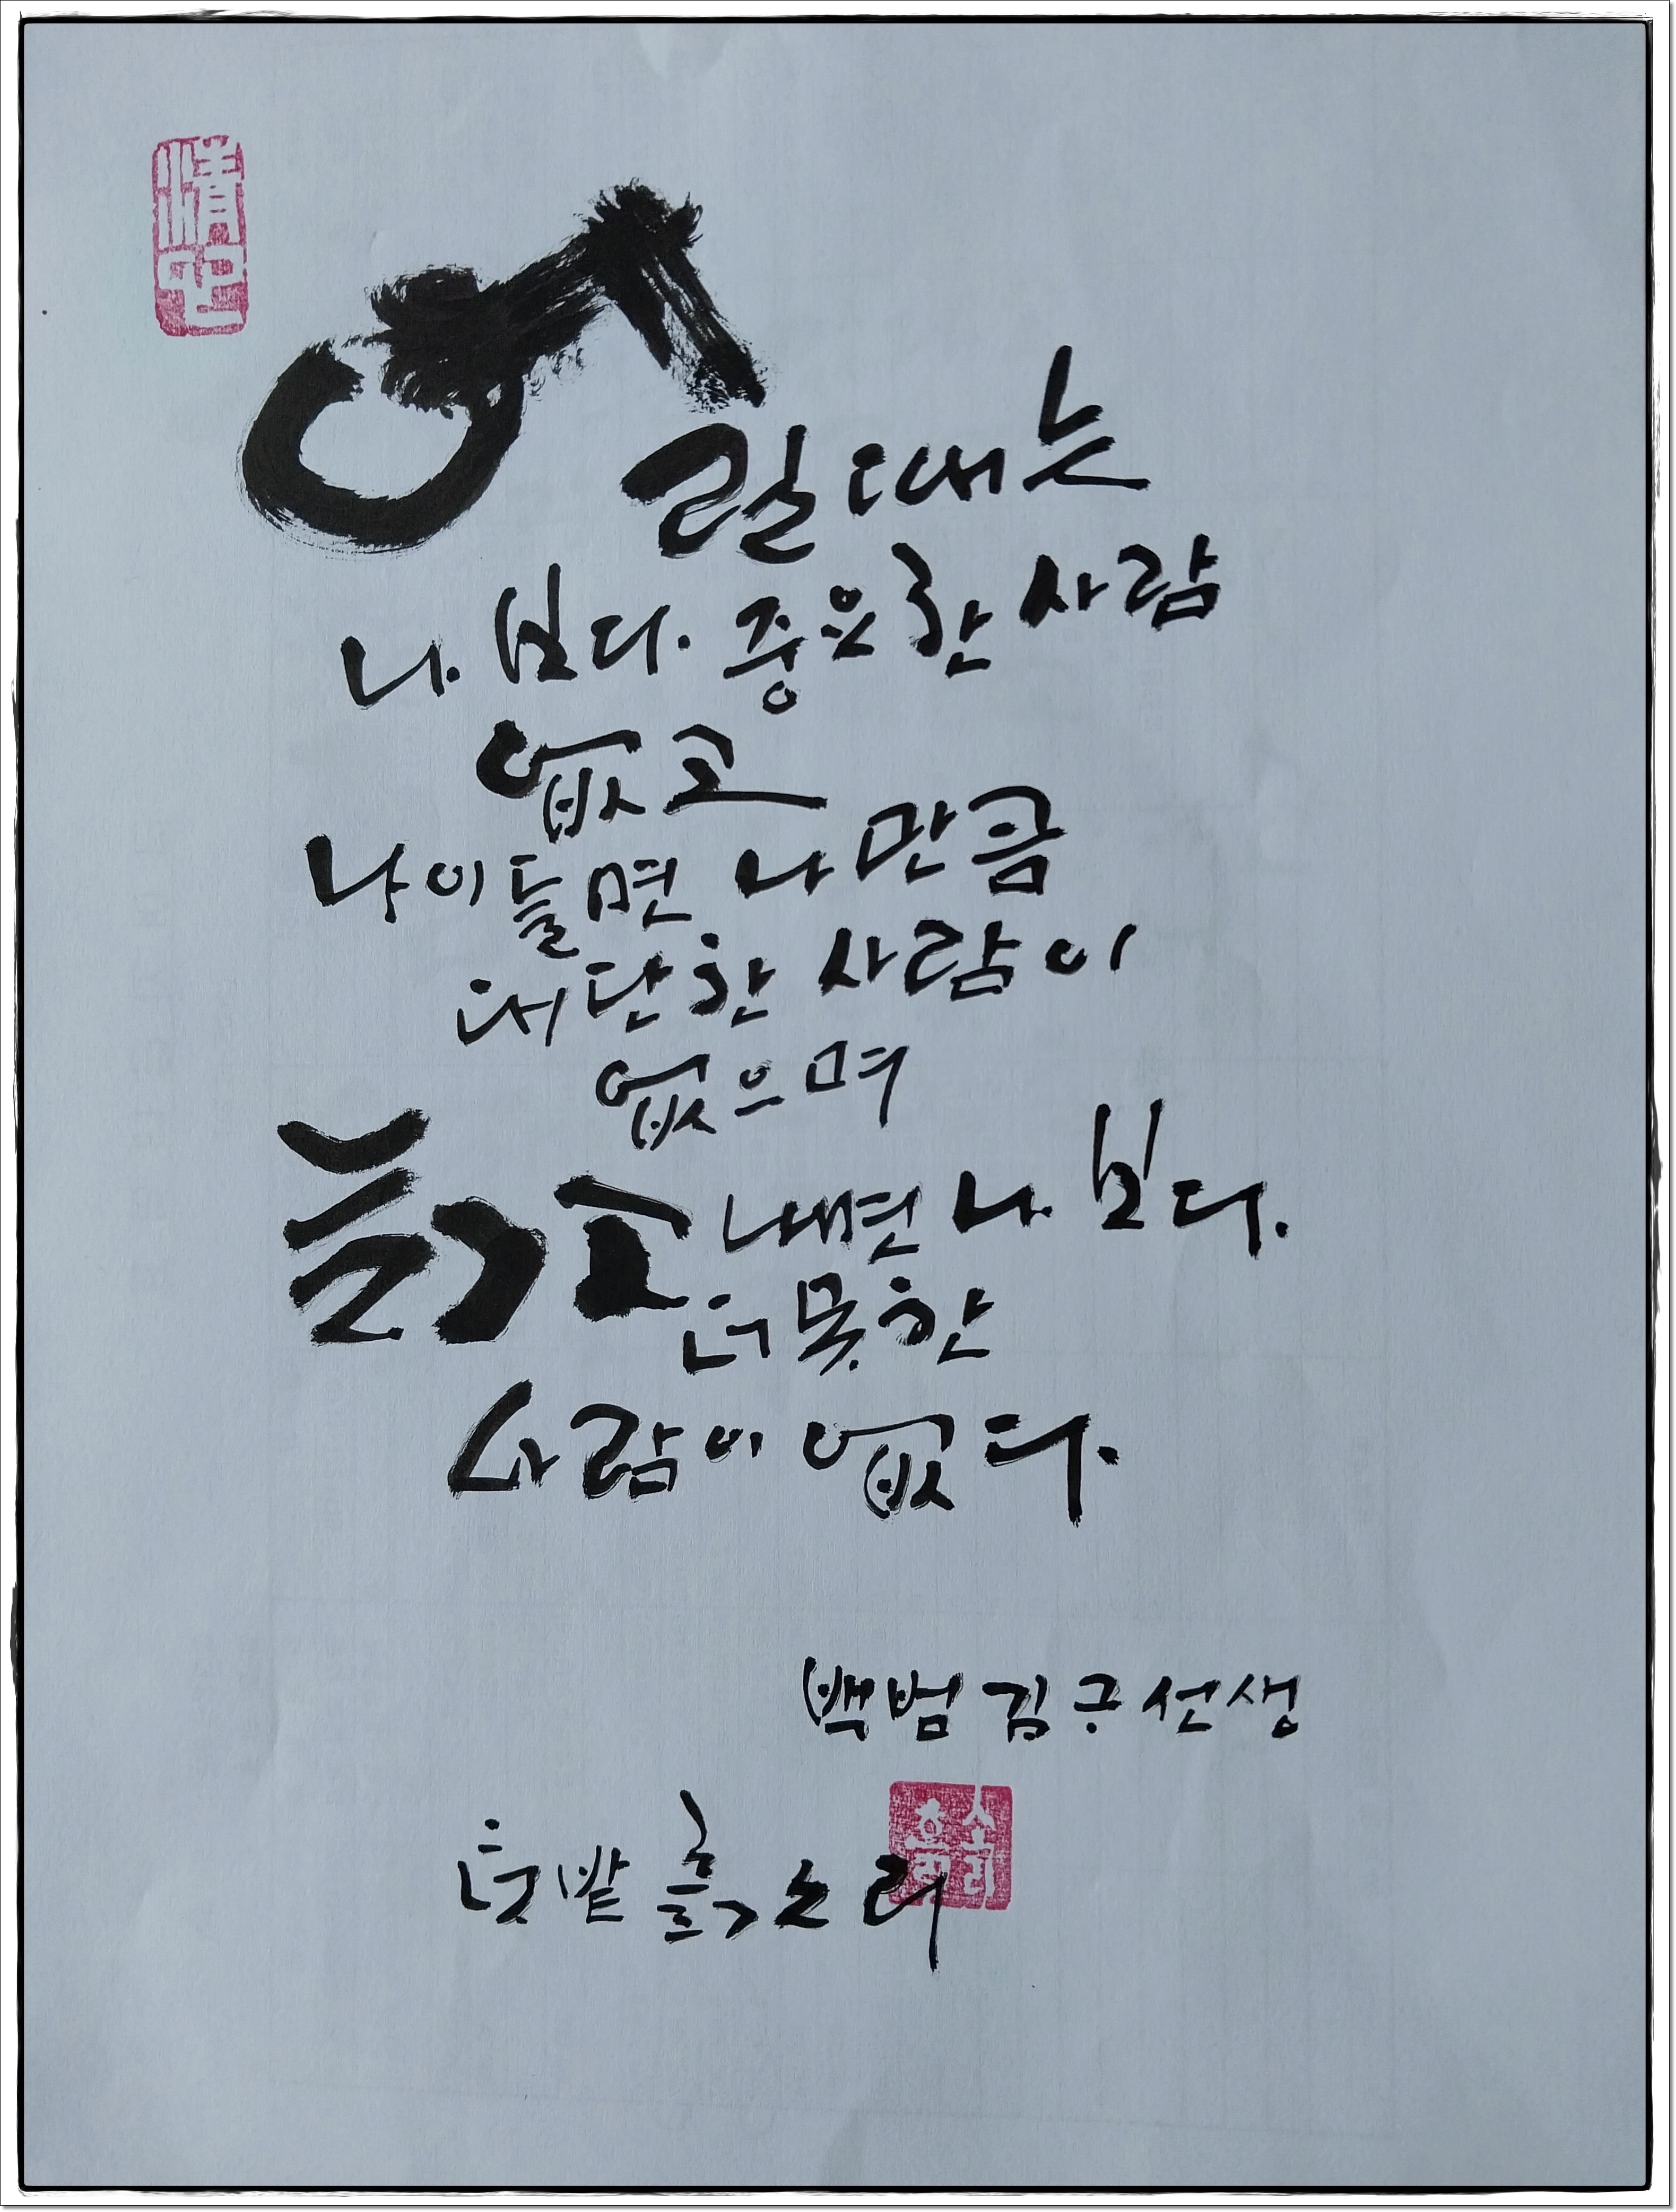 어릴때는
나보다 중요한 사람
없고
나이들면 나만큼
대단한 사람이
없으며
늙고 나면 나보다
더 못한
사람이 없다
백범 김구 선생
텃밭 흙소리